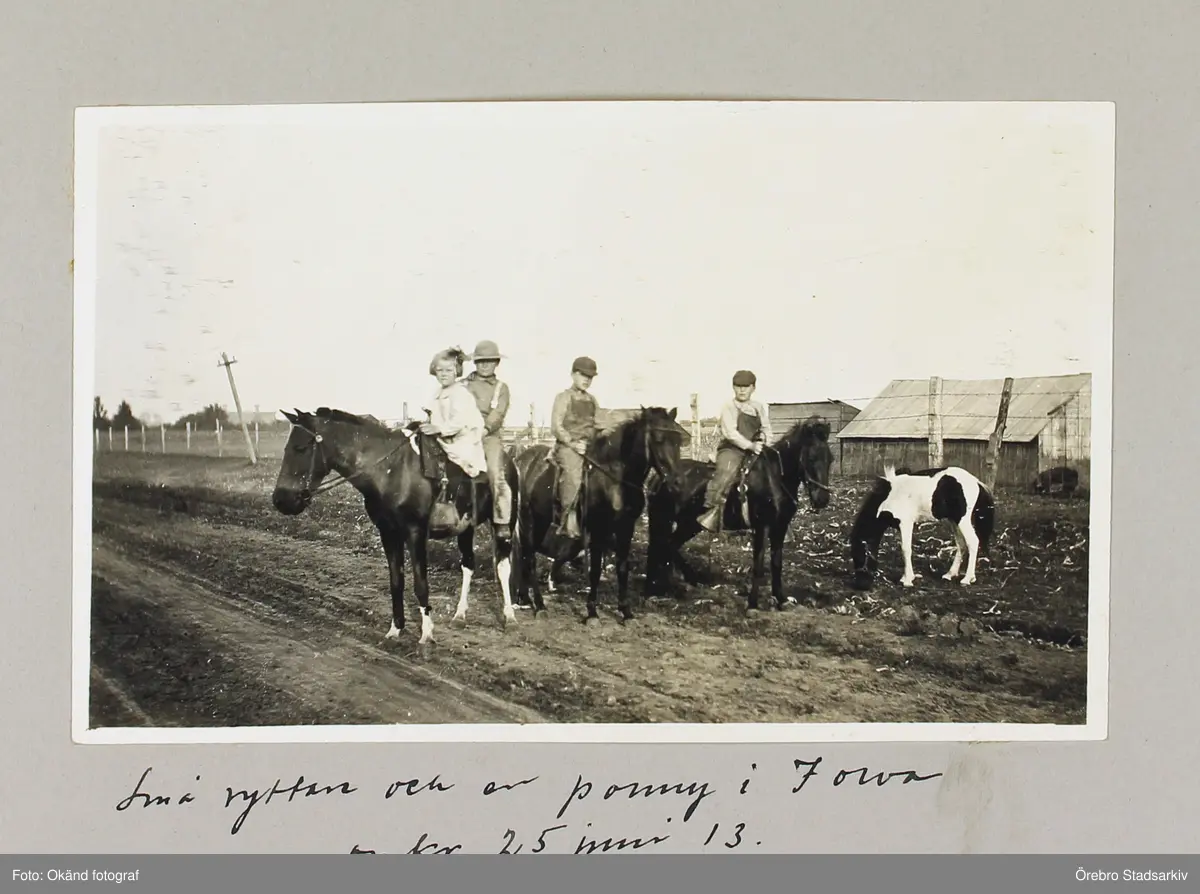 Små ryttare och en ponny i Iowa
kr 25 juni 13.
Foto: Okänd fotograf
Örebro Stadsarkiv